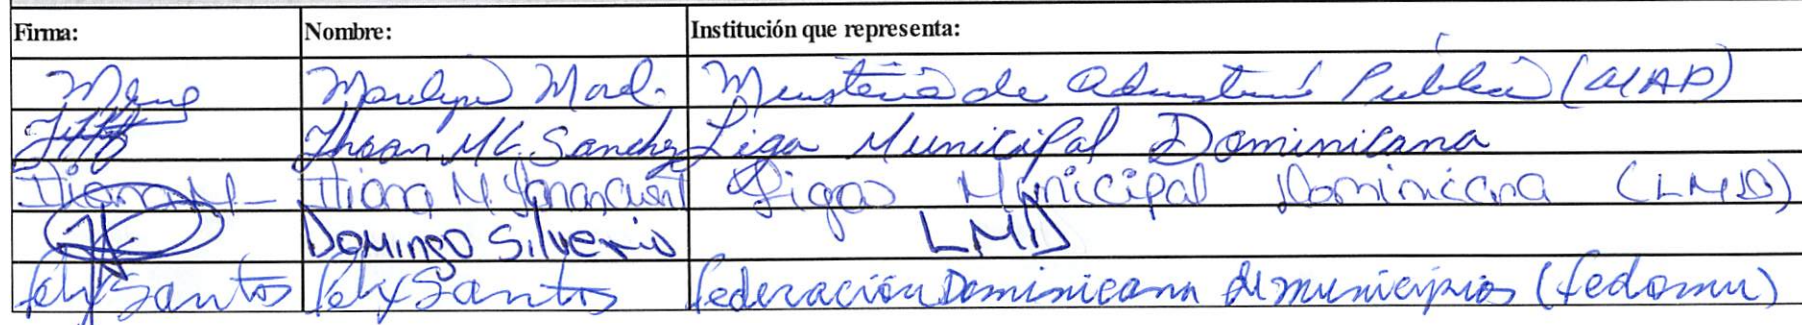 Firma: Nombre: Institución que representa:
Marilyn Ministerio de Pública (MAP)
Sanchez Liga Municipal Dominicana
Iliana M. Ligas Municipal Dominicana (LMD)
Domingo Silverio LMD
Felix Santos Felix Santos Federación Dominicana de municipios (fedomu)